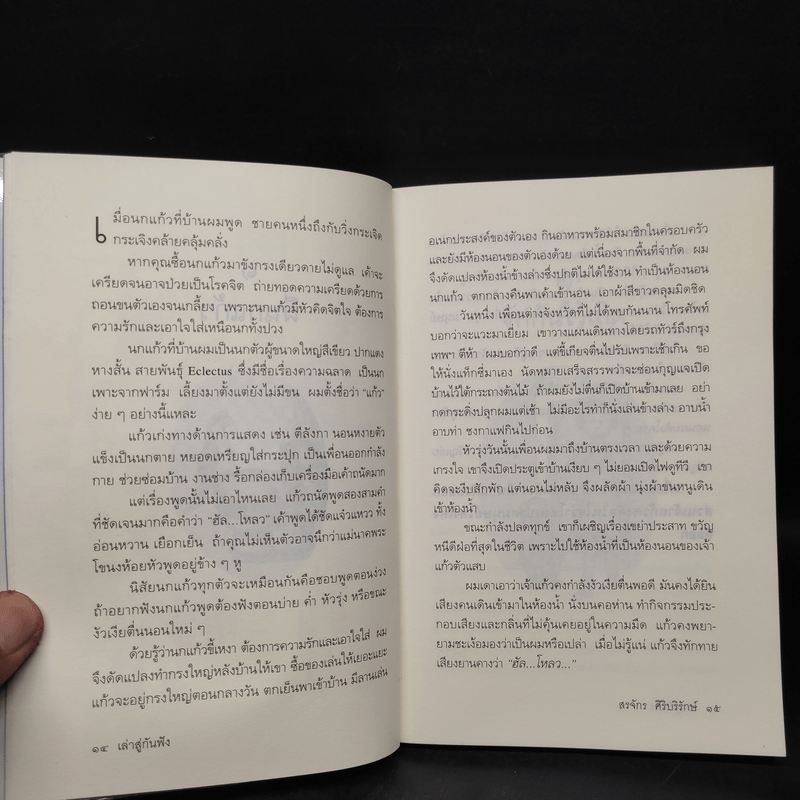 เมื่อนกแก้วที่บ้านผมพูด ชายคนหนึ่งถึงกับวิ่งกระเจิด
กระเจิงคล้ายคลุ้มคลั่ง
หากคุณซื้อนกแก้วมาขังกรงเดียวดายไม่ดูแล เค้าจะ
เครียดจนอาจป่วยเป็นโรคจิต ถ่ายทอดความเครียดด้วยการ
ถอนขนตัวเองจนเกลี้ยง เพราะนกแก้วมีหัวคิดจิตใจ ต้องการ
ความรักและเอาใจใส่เหนือนกทั้งปวง
นกแก้วที่บ้านผมเป็นนกตัวผู้ขนาดใหญ่สีเขียว ปากแดง
หางสั้น สายพันธุ์ Eclectus ซึ่งมีชื่อเรื่องความฉลาด เป็นนก
เพาะจากฟาร์ม เลี้ยงมาตั้งแต่ยังไม่มีขน ผมตั้งชื่อว่า “แก้ว”
ง่าย ๆ อย่างนี้แหละ
แก้วเก่งทางด้านการแสดง เช่น ตีลังกา นอนหงายตัว
แข็งเป็นนกตาย หยอดเหรียญใส่กระปุก เป็นเพื่อนออกกำลัง
กาย ช่วยซ่อมบ้าน งานช่าง รื้อกล่องเก็บเครื่องมือเค้าถนัดมาก
แต่เรื่องพูดนั้นไม่เอาไหนเลย แก้วถนัดพูดสองสามคำ
ที่ชัดเจนมากคือคำว่า “ฮัล...โหลว” เค้าพูดได้ชัดแจ๋วแหวว ทั้ง
อ่อนหวาน เยือกเย็น ถ้าคุณไม่เห็นตัวอาจนึกว่าแม่นาคพระ
โขนงห้อยหัวพูดอยู่ข้าง ๆ หู
นิสัยนกแก้วทุกตัวจะเหมือนกันคือชอบพูดตอนง่วง
ถ้าอยากฟังนกแก้วพูดต้องฟังตอนบ่าย ค่ำ หัวรุ่ง หรือขณะ
งัวเงียตื่นนอนใหม่ ๆ
ด้วยรู้ว่านกแก้วขี้เหงา ต้องการความรักและเอาใจใส่ ผม
จึงดัดแปลงทำกรงใหญ่หลังบ้านให้เขา ซื้อของเล่นให้เยอะแยะ
แก้วจะอยู่กรงใหญ่ตอนกลางวัน ตกเย็นพาเข้าบ้าน มีลานเล่น
๑๔ เล่าสู่กันฟัง
อเนกประสงค์ของตัวเอง กินอาหารพร้อมสมาชิกในครอบครัว
และยังมีห้องนอนของตัวเองด้วย แต่เนื่องจากพื้นที่จำกัด ผม
จึงดัดแปลงห้องน้ำข้างล่างซึ่งปกติไม่ได้ใช้งาน ทำเป็นห้องนอน
นกแก้ว ตกกลางคืนพาเค้าเข้านอน เอาผ้าสีขาวคลุมมิดชิด
วันหนึ่ง เพื่อนต่างจังหวัดที่ไม่ได้พบกันนาน โทรศัพท์
บอกว่าจะแวะมาเยี่ยม เขาวางแผนเดินทางโดยรถทัวร์ถึงกรุง
เทพฯ ตีห้า ผมบอกว่าดี แต่ขี้เกียจตื่นไปรับเพราะเช้าเกิน ขอ
ให้นั่งแท็กซี่มาเอง นัดหมายเสร็จสรรพว่าจะซ่อนกุญแจเปิด
บ้านไว้ใต้กระถางต้นไม้ ถ้าผมยังไม่ตื่นก็เปิดบ้านเข้ามาเลย อย่า
กดกระดิ่งปลุกผมแต่เช้า ไม่มีอะไรทำก็นั่งเล่นข้างล่าง อาบน้ำ
อาบท่า ชงกาแฟกินไปก่อน
หัวรุ่งวันนั้นเพื่อนผมมาถึงบ้านตรงเวลา และด้วยความ
เกรงใจ เขาจึงเปิดประตูเข้าบ้านเงียบ ๆ ไม่ยอมเปิดไฟดูทีวี เขา
คิดจะงีบสักพัก แต่นอนไม่หลับ จึงผลัดผ้า นุ่งผ้าขนหนูเดิน
เข้าห้องน้ำ
ขณะกำลังปลดทุกข์ เขาก็เผชิญเรื่องเขย่าประสาท ขวัญ
หนีดีฝ่อที่สุดในชีวิต เพราะไปใช้ห้องน้ำที่เป็นห้องนอนของเจ้า
แก้วตัวแสบ
ผมเดาเอาว่าเจ้าแก้วคงกำลังงัวเงียตื่นพอดี มันคงได้ยิน
เสียงคนเดินเข้ามาในห้องน้ำ นั่งบนคอห่าน ทำกิจกรรมประ-
กอบเสียงและกลิ่นที่ไม่คุ้นเคยอยู่ในความมืด แก้วคงพยา-
ยามชะเง้อมองว่าเป็นผมหรือเปล่า เมื่อไม่รู้แน่ แก้วจึงทักทาย
เสียงยานคางว่า “ฮัล...โหลว...”
สรจักร ศิริบริรักษ์ ๑๕